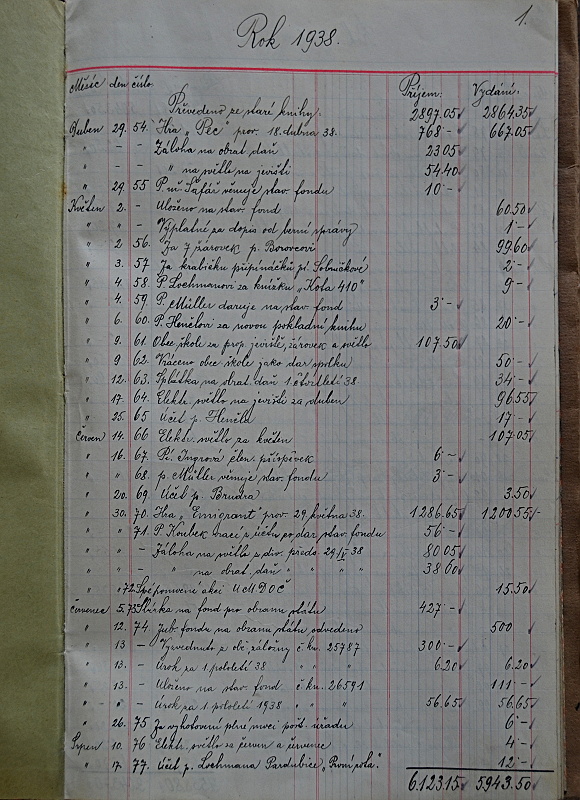 1.
Rok 1938.
Měsíc den číslo. Příjem: Vydání:
Převedeno ze staré knihy. 2897.05 2864.35
Duben 29. 54. Hra „Pec" prov. 18. dubna 38. 768 - 667.05
" - - Záloha na obrat. daň 23.05
" - - " na světlo na jevišti 54.40
" 29. 55 P. uč. Šafář věnuje stav. fondu 10 -
Květen 2. - Uloženo na stav. fond 60.50
" " - Výplatní za dopis od berní správy 1 -
" 2. 56. Za 7 žárovek p. Borovcovi 99.60
" 3. 57. Za krabičku připínáčků sl. 2 -
" 4. 58. P. Lochmanovi za knížku „Kota 410" 9 -
" 4. 59 P. Müller daruje na stav. fond 3 -
" 6. 60. P. Henčlovi za novou pokladní knihu 20 -
" 9. 61. Obec. škole za prop. jeviště, žárovek a světlo 107.50
" 9 62. Vráceno obec. škole jako dar spolku 50 -
" 12. 63. Splátka na obrat. daň 1. čtvrtletí 38. 34 -
" 17. 64. Elektr. světlo na jevišti za duben 96.55
" 25. 65 Účet p. Henčla 17 -
Červen 14. 66 Elektr. světlo za květen 107.05
" 16. 67. Pí. Ingrová člen. příspěvek 6 -
" " 68. p. Müller věnuje stav. fondu 3 -
" 20. 69. Účet p. 3.50
" 30. 70. Hra „Emigrant" prov. 29. května 38. 1286.65 1200.55
" " 71. P. Koubek vrací z účtu po dar stav. fondu 56 -
" " - Záloha na světlo z div. předs. 29/V 38 80.05
" " - " na obrat. daň " " " " 38.60
" " 72. akci ÚMDOČ 15.50
Červenec 5. 73. Sbírka na fond pro obranu státu 427 -
" 12. 74. Jub. fondu na obranu státu odvedeno 500
" 13 - Vyzvednuto z ob. záložny č. kn. 25787 300 -
" 13. - Úrok za 1. pololetí 38 " " " 6.20 6.20
" 13. - Uloženo na stav. fond. č. kn. 26591 111 -
" - - Úrok za 1 pololetí 1938 " " " 56.65 56.65
" 26. 75 Za vyhotovení plné moci pošt. úřadu 6 -
Srpen 10. 76 Elektr. světlo za červen a červenec 4 -
" 17. 77. Účet p. Lochmana Pardubice „První rota". 12 -
6.123.15 5943.50